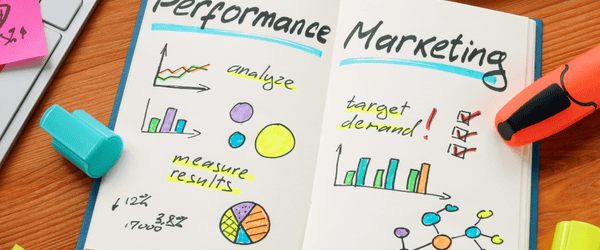 Performance
analyze
measure
results
↓12%
17000 3,8%
Marketing
target
demand!